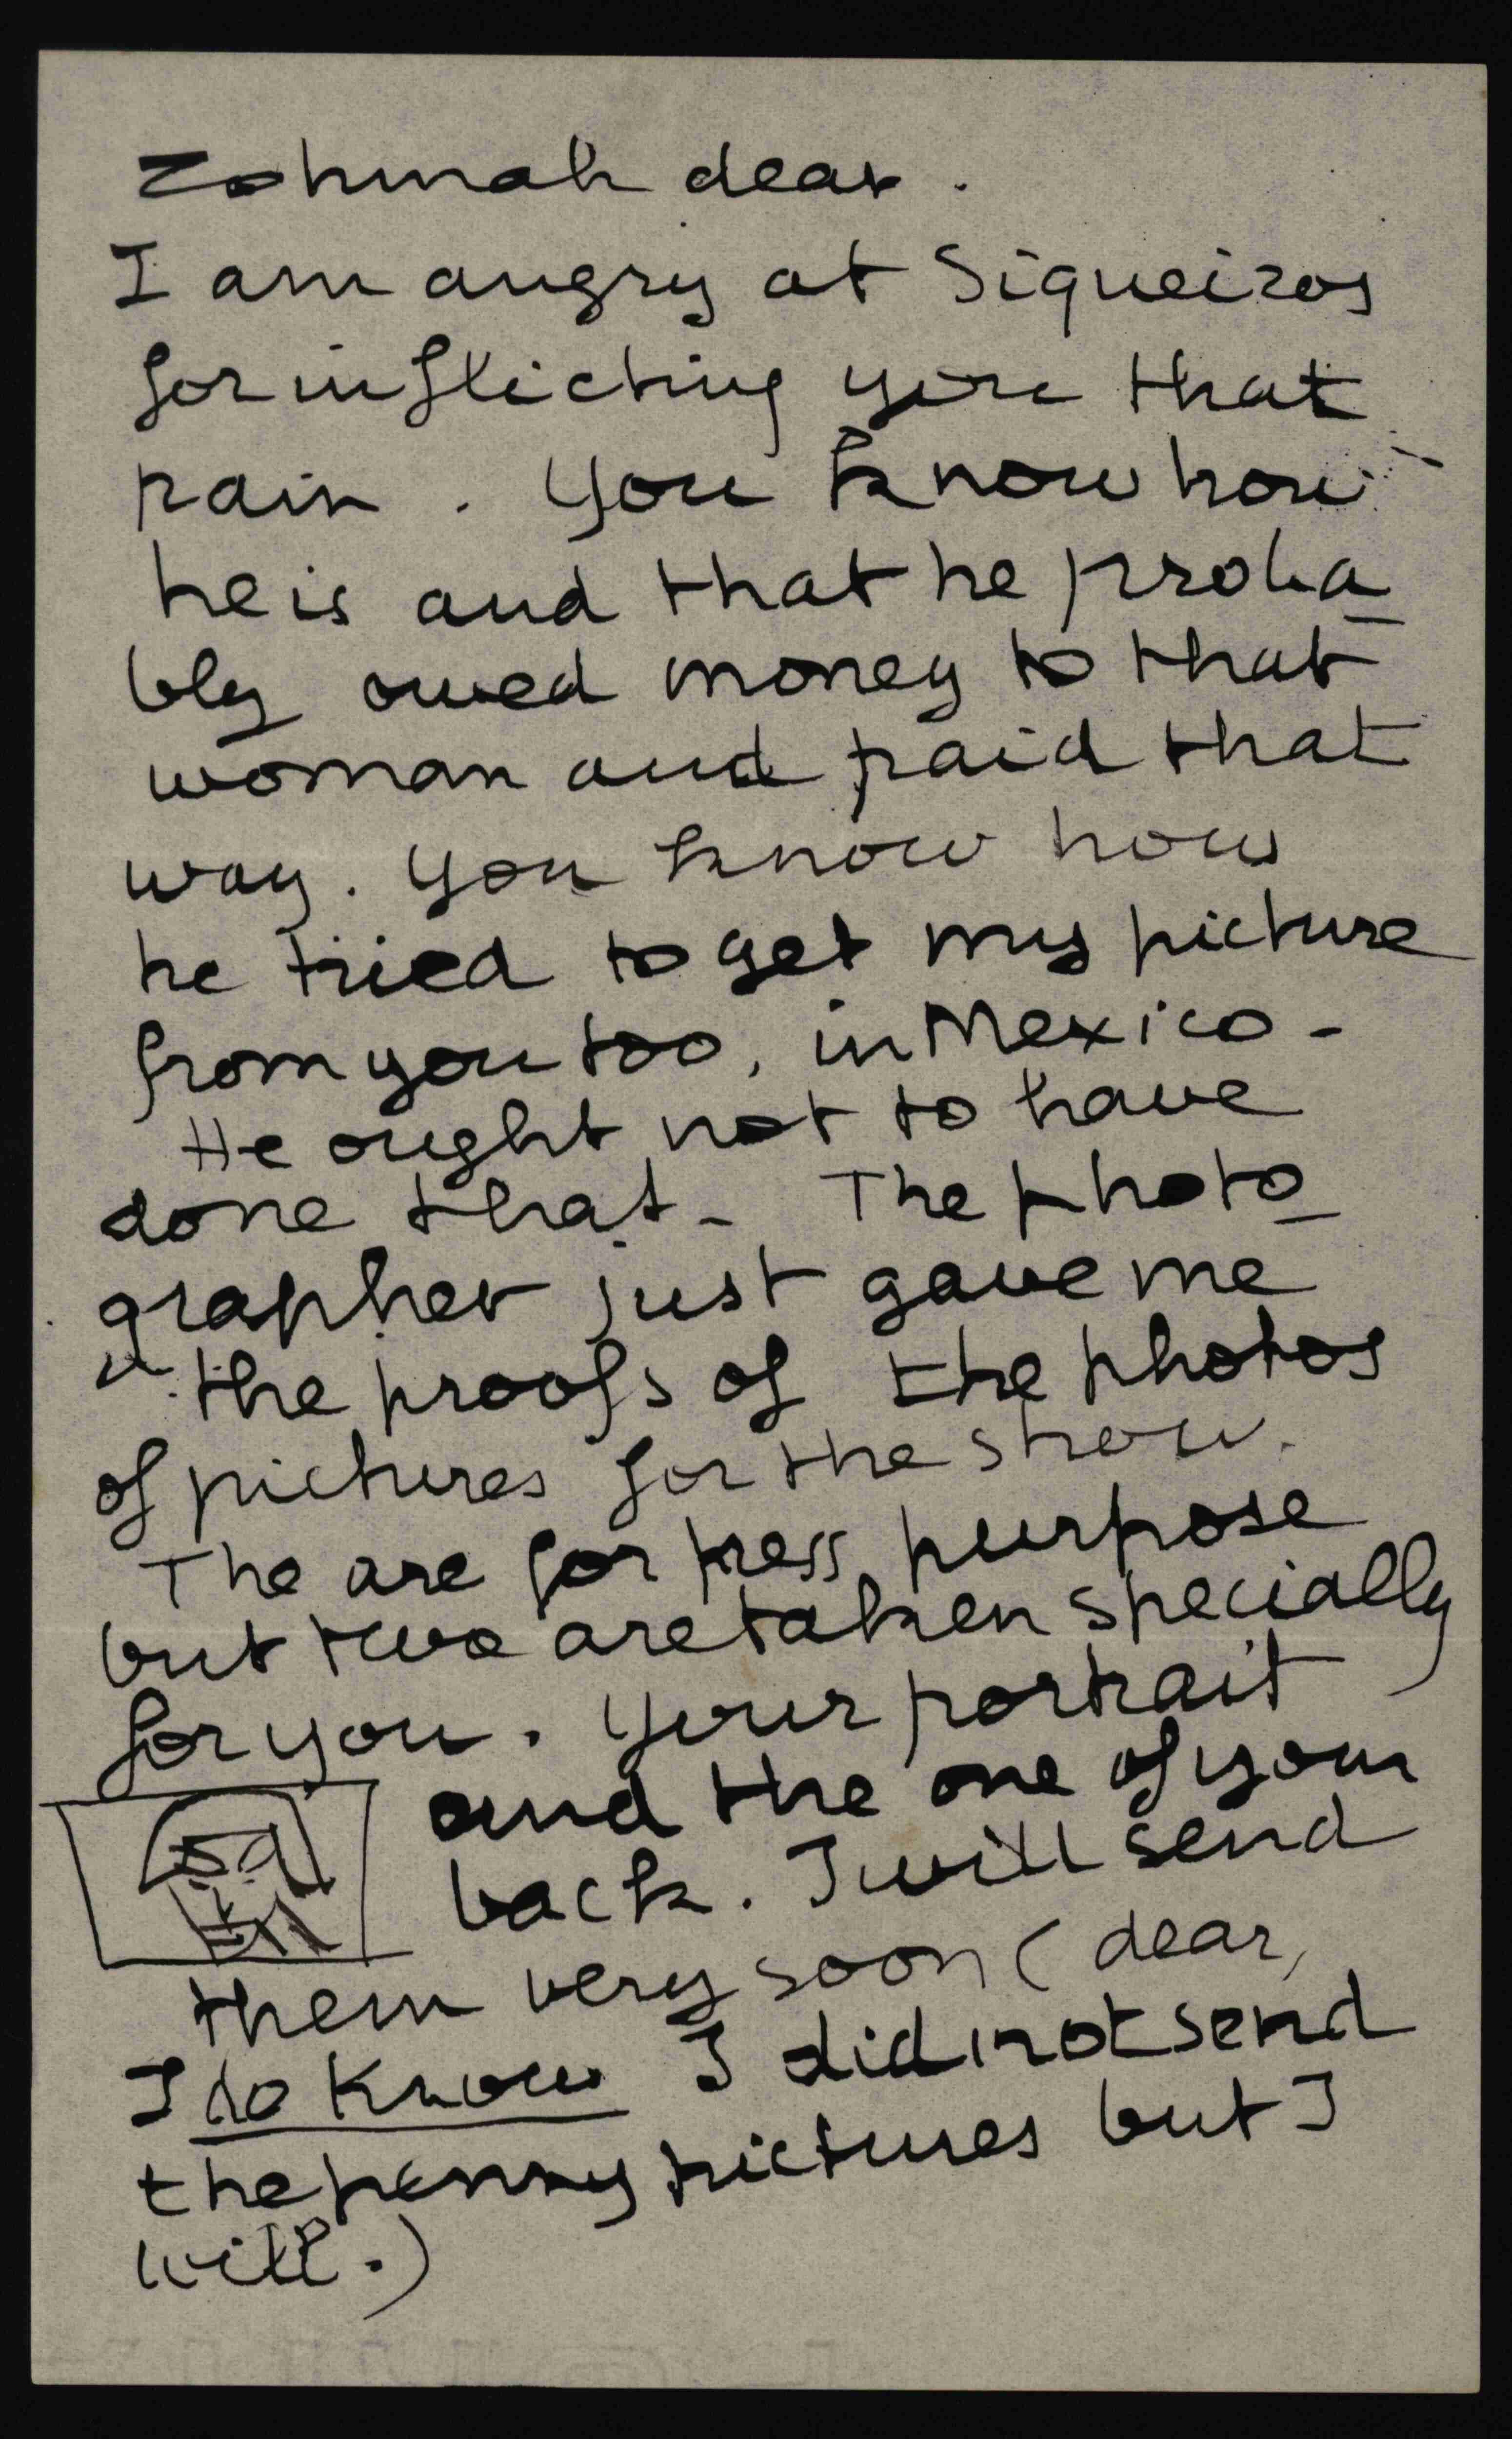 Zohmah dear.
I am angry at Siqueiros
for inflicting you that
pain. You know how
he is and that he proba_
bly owed money to that
woman and paid that
way. You know how
he tried to get my picture
from you too, in Mexico -
He ought not to have
done that - The photo_
grapher just gave me
the proofs of the photos
of pictures for the show.
The are for press purpose
but two are taken specially
for you. Your portrait
and the one of your
back. I will send
them very soon (dear,
I do know I did not send
the penny pictures but I
will.)